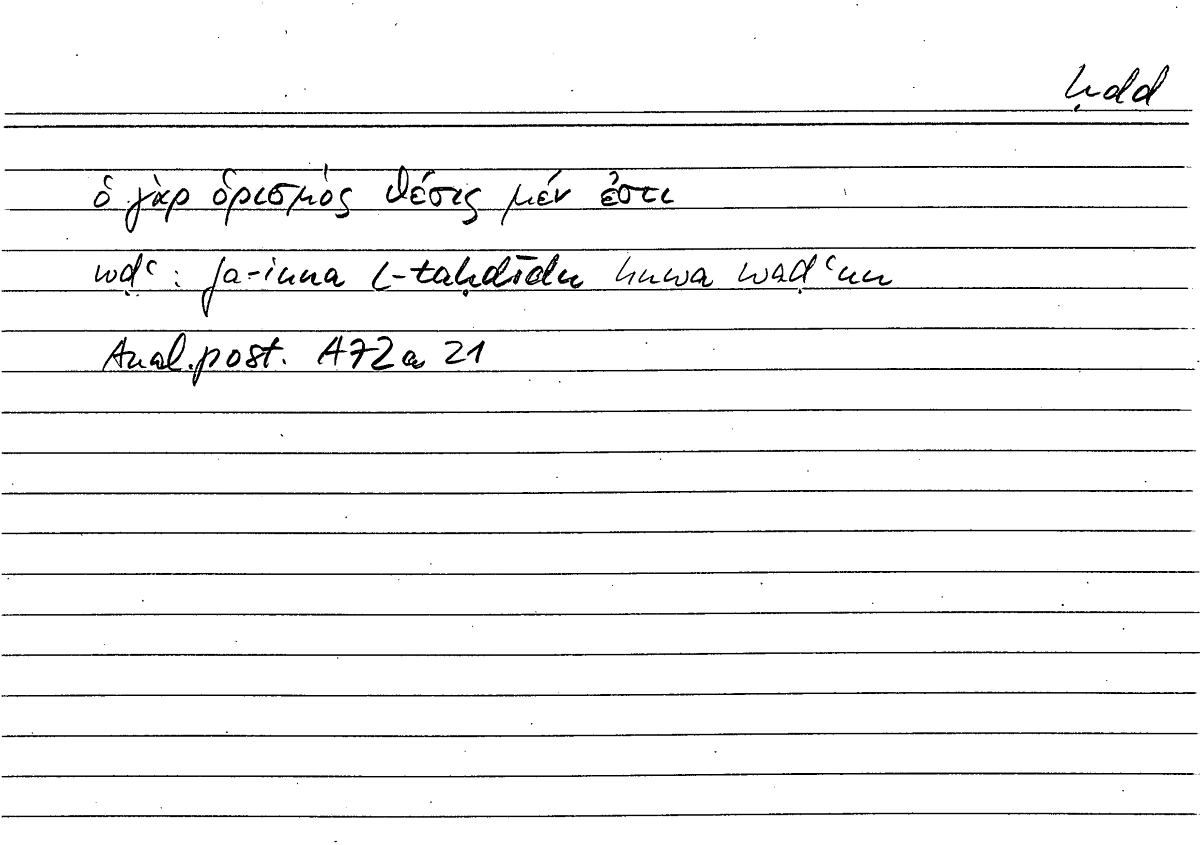 ḥdd
ὁ γὰρ ὁρισμὸς θέσις μέν ἐστι
wḍʿ : fa-inna l-taḥdīdu huwa waḍʿun
Anal. post. A72a 21